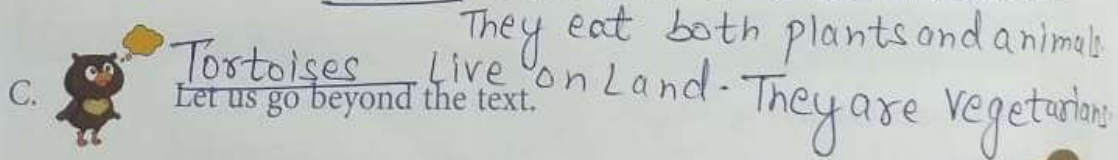 They eat both plants and animals
Tortoises Live on Land. They are vegetarians
C. Let us go beyond the text.